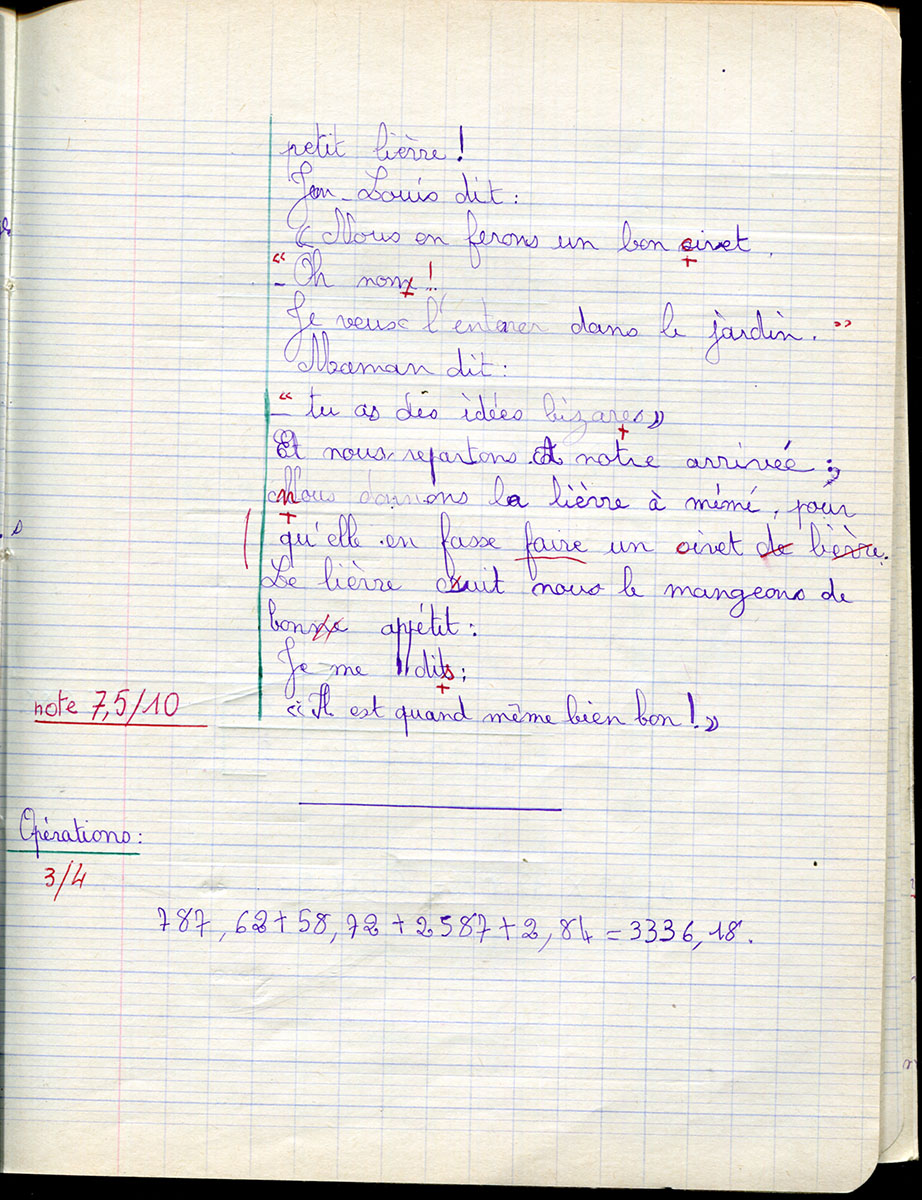 petit lièvre !
Jean-Louis dit :
« Nous en ferons un bon civet.
“ - Oh non !
Je veux l'enterrer dans le jardin. ”
Maman dit :
“ - tu as des idées bizares »
Et nous repartons. A notre arrivée ;
Nous donnons le lièvre à mémé, pour
qu'elle en fasse faire un civet de lièvre.
Le lièvre cuit nous le mangeons de
bon appétit :
Je me dis ;
note 7,5/10
« Il est quand même bien bon ! »
Opérations :
3/4
787,62 + 58,72 + 2587 + 2,84 = 3336,18.